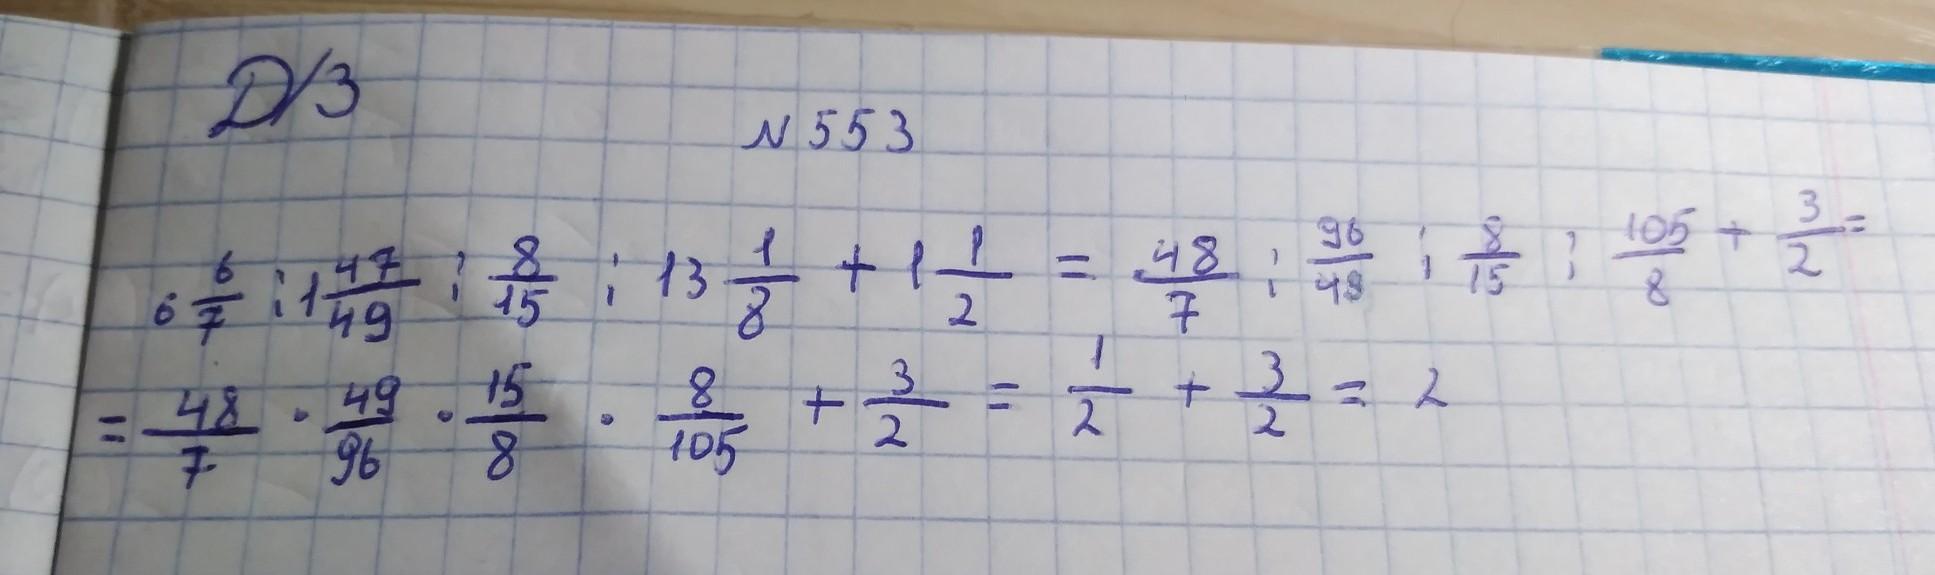 Д/З
N 553
6 6/7 : 1 47/49 : 8/15 : 13 1/8 + 1 1/2 = 48/7 : 96/49 : 8/15 : 105/8 + 3/2 =
= 48/7 · 49/96 · 15/8 · 8/105 + 3/2 = 1/2 + 3/2 = 2